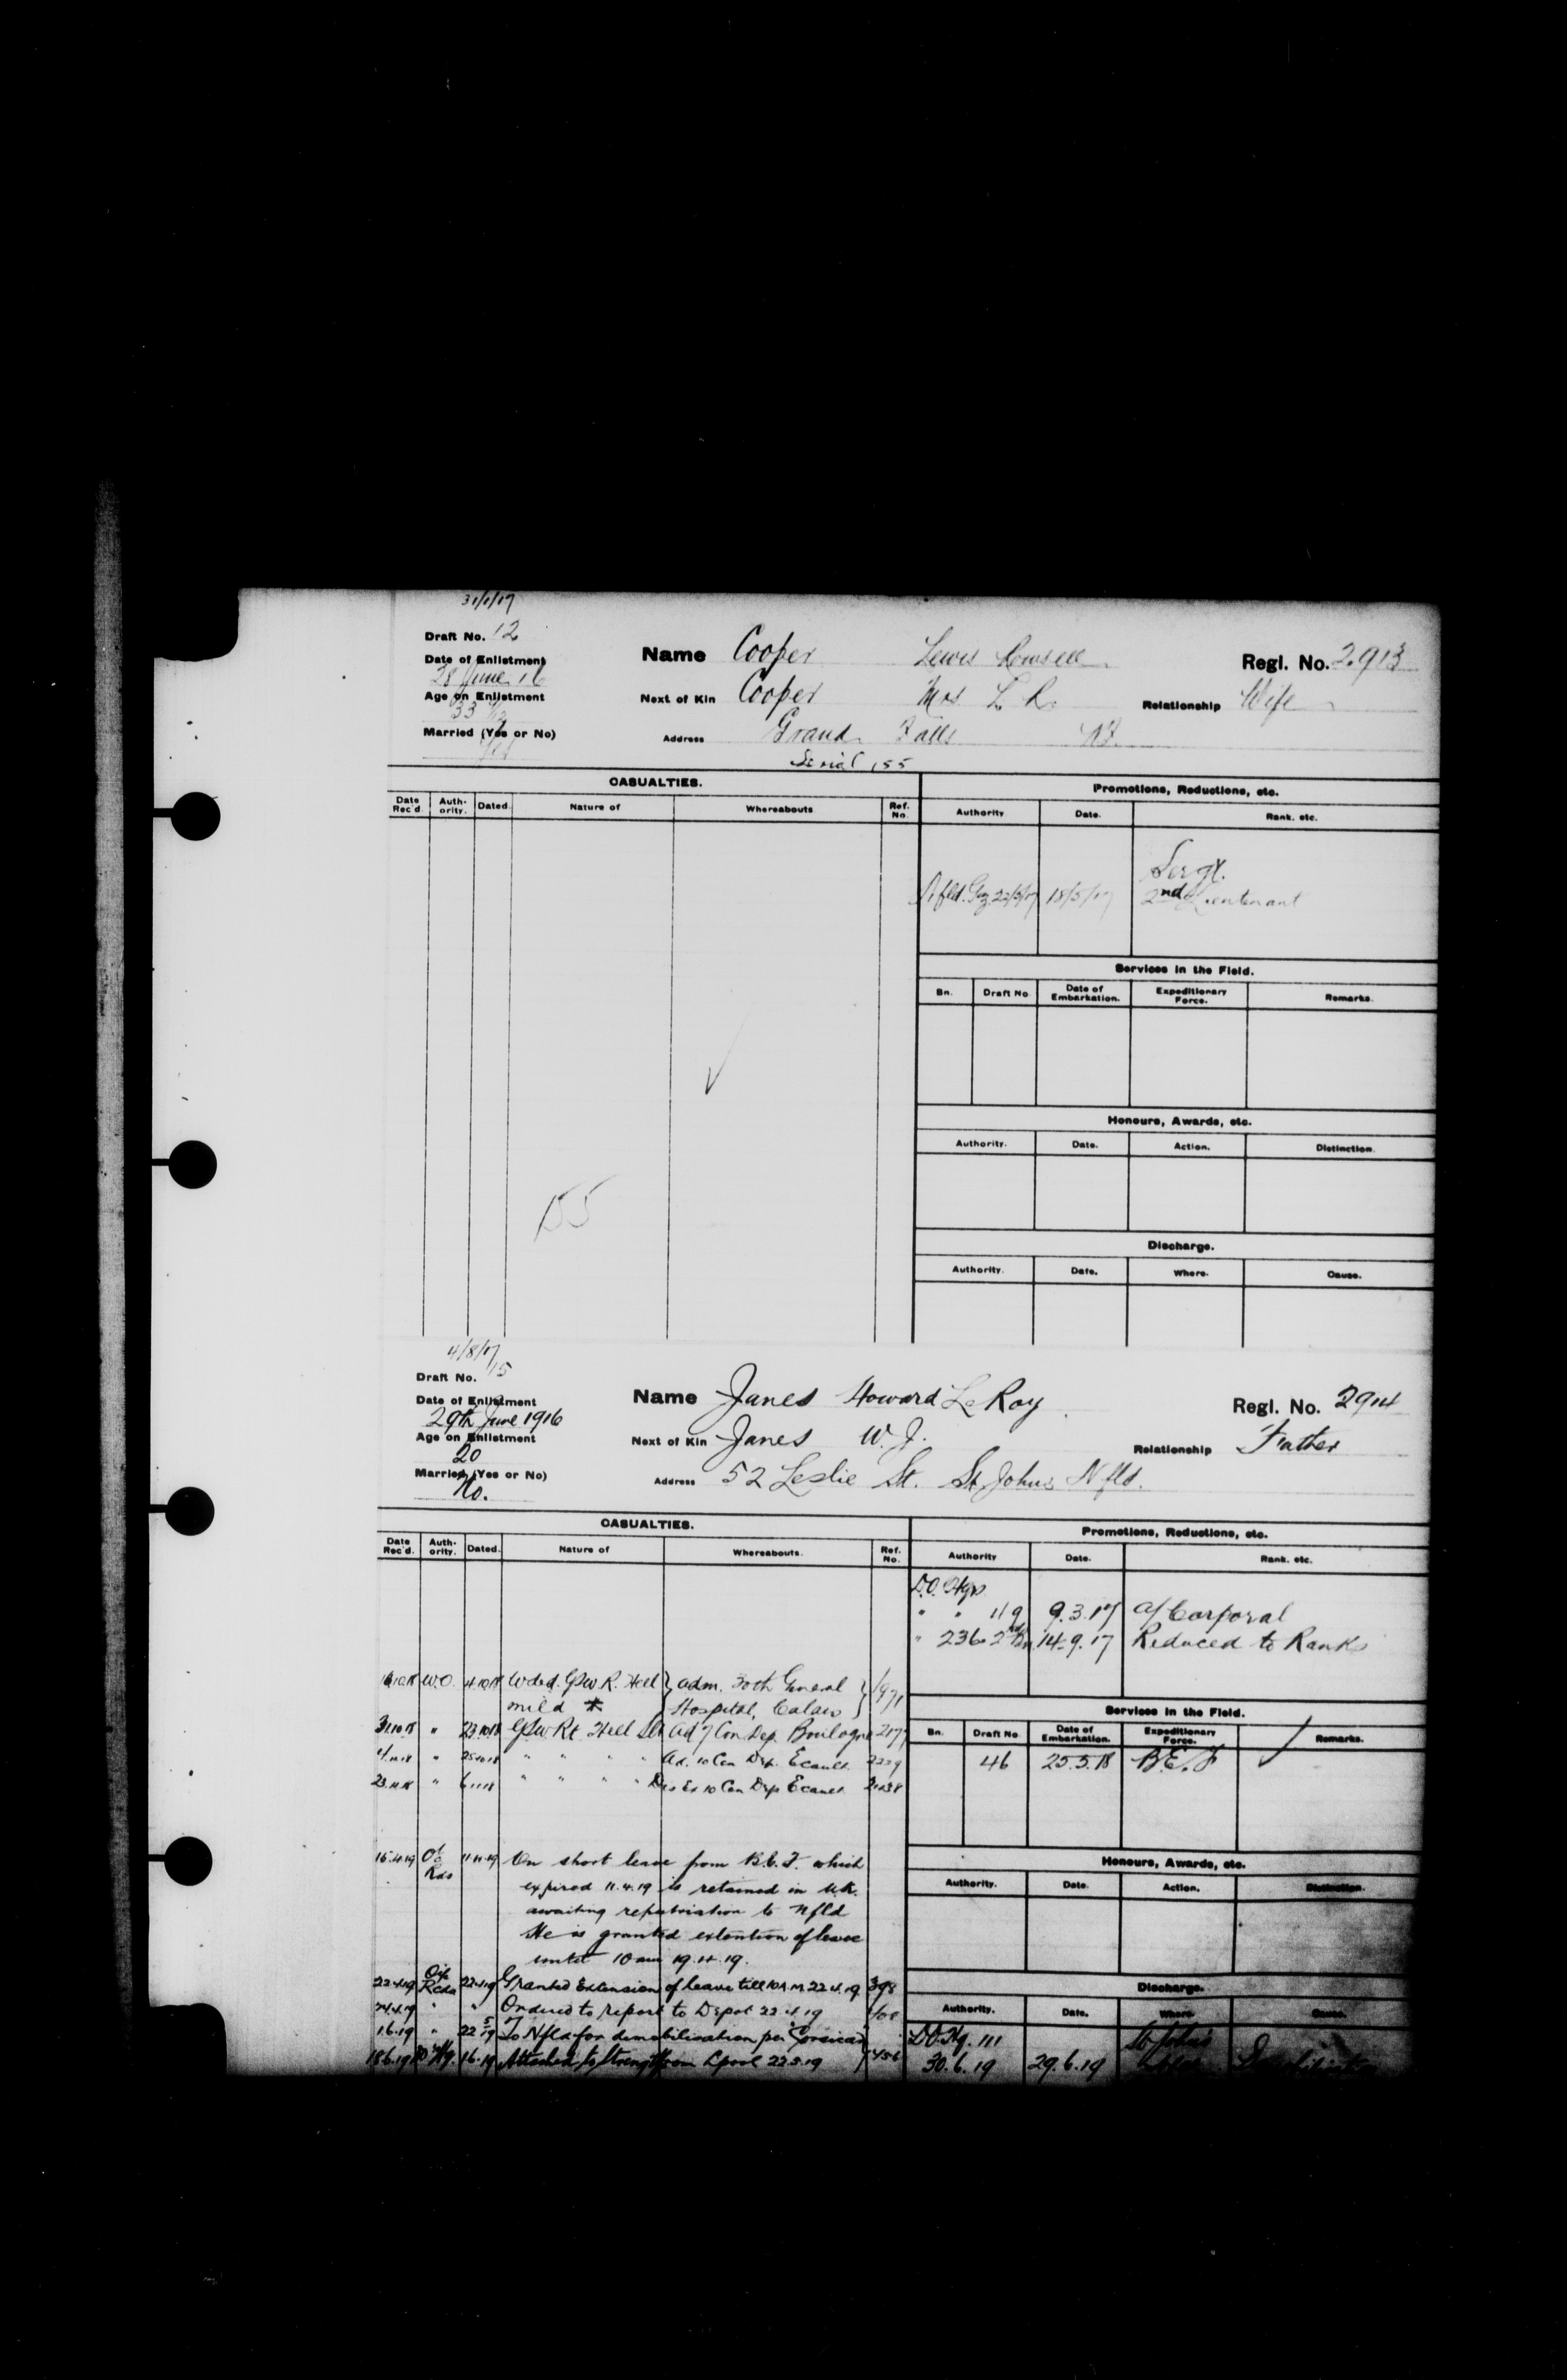 31/1/17
Draft No. 12
Date of Enlistment
28 June 16
Age on Enlistment
33
Married (Yes or No)
Yes
Name Cooper Lewis Rowsell
Regl. No. 2913
Next of Kin Cooper Mrs L. R.
Relationship Wife
Address Grand Falls Nf.
Serial 155
CASUALTIES.
Date Rec'd. Auth-ority. Dated. Nature of Whereabouts Ref. No.
155
Promotions, Reductions, etc.
Authority Date. Rank. etc.
Sergt.
Nfld. Gaz 22/5/17 18/5/17 2nd Lieutenant
Services in the Field.
Bn. Draft No. Date of Embarkation. Expeditionary Force. Remarks.
Honours, Awards, etc.
Authority. Date. Action. Distinction.
Discharge.
Authority. Date. Where. Cause.
4/8/17
Draft No. 15
Date of Enlistment
29th June 1916
Age on Enlistment
20
Married (Yes or No)
No.
Name Janes Howard LeRoy
Regl. No. 2914
Next of Kin Janes W. J.
Relationship Father
Address 52 Leslie St. St. John's Nfld.
CASUALTIES.
Date Rec'd. Auth-ority. Dated. Nature of Whereabouts. Ref. No.
W.O. 4.10.18 Wded. GSW R. Heel adm. 30th General 1971
mild Hospital, Calais
31.10.18 " 23.10.18 GSW Rt. Heel Con Dep. Boulogne
" 25.10.18 " " " " Ad. 10 Con Dep. Ecault
23.11.18 " 6.11.18 " " " " Dis Ex 10 Con Dep Ecault
15.4.19 Rds On short leave from B.E.F. which
expired 11.4.19 is retained in U.K.
awaiting repatriation to Nfld
He is granted extention of leave
until 10 am 19.4.19.
22.4.19 O i/c Rcds 22.4.19 Granted Extension of Leave till 10 A.M. 22.4.19 398
24.4.19 " " Ordered to report to Depot 22.4.19 408
1.6.19 " 22 5/19 To Nfld for demobilisation per "Corsican"
18.6.19 1.6.19 Attached to Strength from Lpool 22.5.19
Promotions, Reductions, etc.
Authority Date. Rank. etc.
D.O. Hqrs
" " 119 9.3.17 A/Corporal
" 236 2nd Bn. 14.9.17 Reduced to Ranks
Services in the Field.
Bn. Draft No. Date of Embarkation. Expeditionary Force. Remarks.
46 25.5.18 B.E.F
Honours, Awards, etc.
Authority. Date. Action. Distinction.
Discharge.
Authority. Date. Where. Cause.
D.O. Hq. 111 St John's
30.6.19 29.6.19 Demobilization